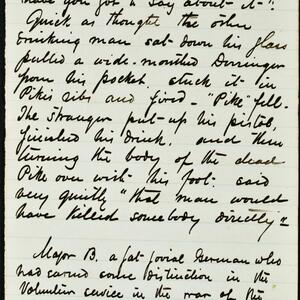 have you got a say about it"?
Quick as thought the other
drinking man sat down his glass
pulled a wide-mouthed Derringer
from his pocket. stuck it in
Pike's ribs and fired — "Pike" fell.
The stranger put up his pistol,
finished his drink, and then
turning the body of the dead
Pike over with his foot. said
very quietly "that man would
have killed somebody directly"—
Major B. a fat jovial German who
had earned some distinction in the
Volunteer service in the war of the